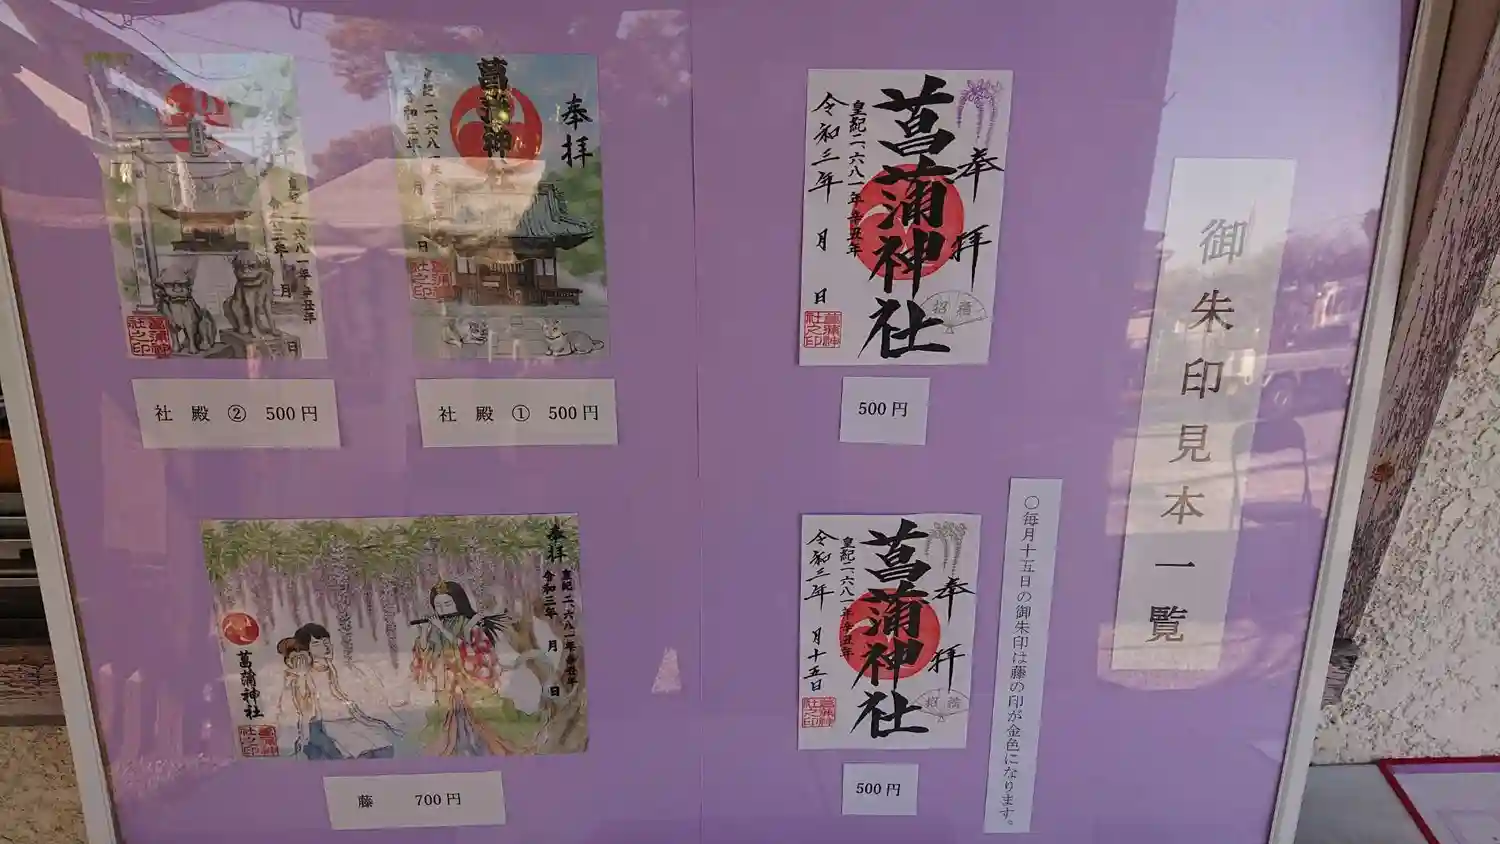 御朱印見本一覧
奉拝
菖蒲神社
皇紀二、六八一年辛丑年
令和三年 月 日
菖蒲神社之印
500円
奉拝
菖蒲神社
皇紀二、六八一年
令和三年 月 日
菖蒲神社之印
社殿① 500円
皇紀二、六八一年 辛丑年
令和三年 月 日
菖蒲神社之印
社殿② 500円
〇毎月十五日の御朱印は藤の印が金色になります。
奉拝
菖蒲神社
皇紀二、六八一年辛丑年
令和三年 月十五日
菖蒲神社之印
500円
奉拝
皇紀二、六八一年辛丑年
令和三年 月 日
菖蒲神社
菖蒲神社之印
藤 700円